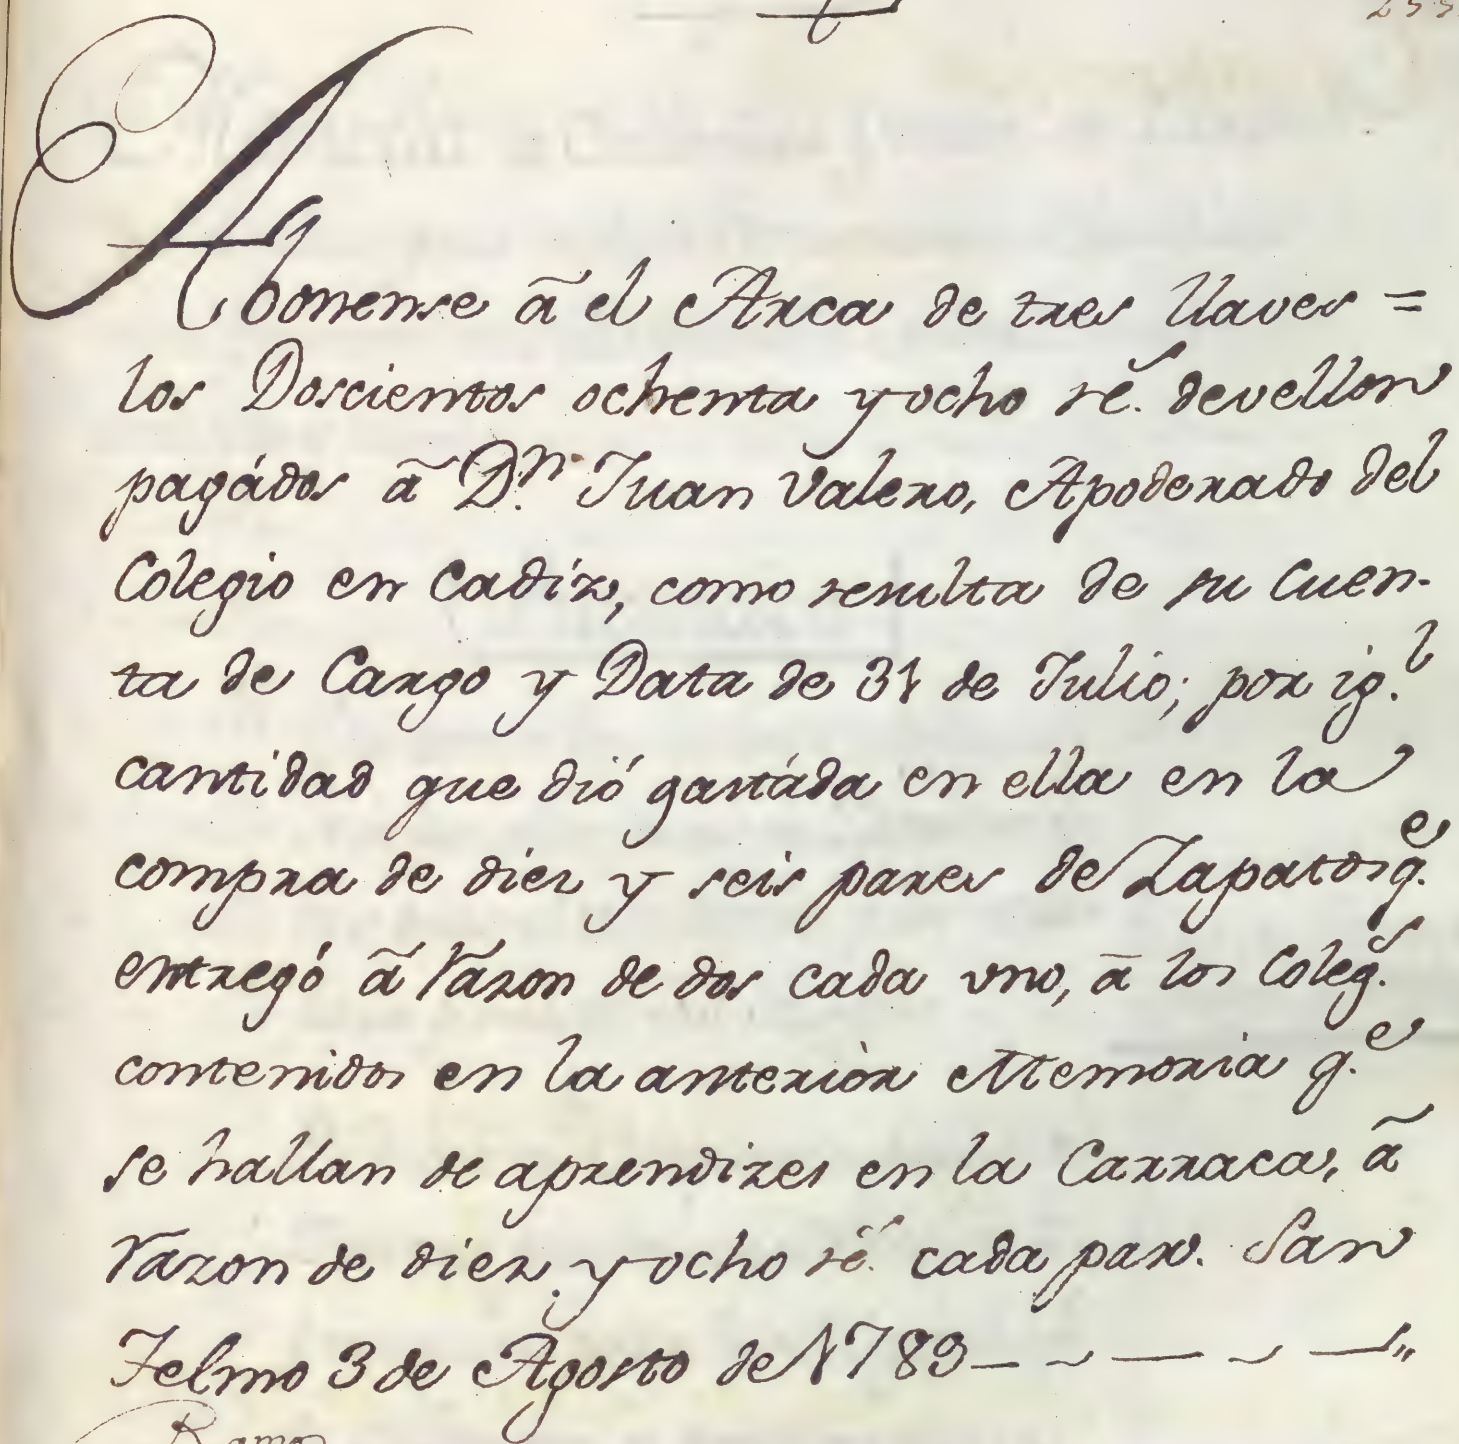 Abonense à el Arca de tres llaves =
los Doscientos ochenta y ocho rs. de vellon
pagádos à Dn. Juan Valero, Apoderado del
Colegio en Cadiz, como resulta de su Cuen-
ta de Cargo y Data de 31 de Julio; por ig.l
cantidad que dió gastáda en ella en la
compra de diez y seis pares de Zapatos q.e
entregó à razon de dos cada uno, à los Coleg.s
contenidos en la anteriòr Memoria q.e
se hallan de aprendizes en la Carraca, à
razon de diez y ocho rs. cada par. San
Telmo 3 de Agosto de 1789
Ramos